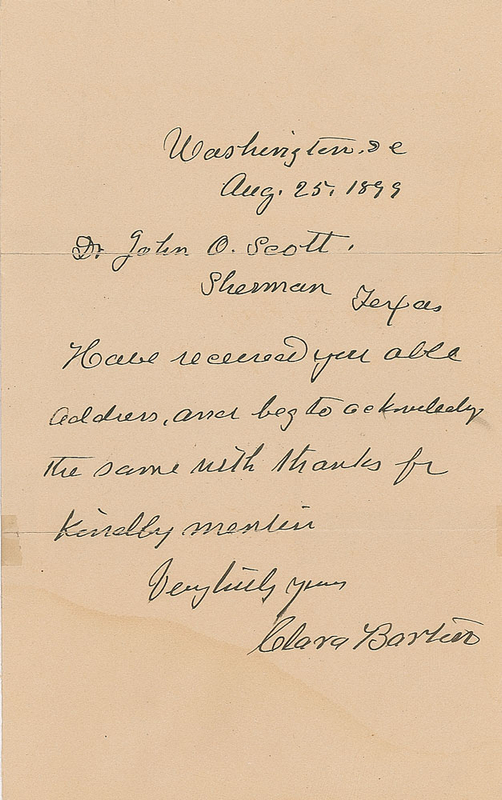 Washington. D C
Aug. 25, 1899
Dr. John O. Scott.
Sherman Texas
Have received your able
address, and beg to acknowledge
the same with thanks for
kindly mention
Very truly yours
Clara Barton